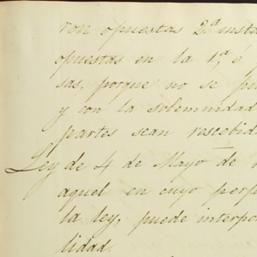 ron opuestas 2.a insta
opuestas en la 1.a, ó
sas, porque no se pu
y con la solemnidad
partes sean rescebid
Ley de 4 de Mayo de
aquel en cuyo perj
la ley, puede interpo
lidad.